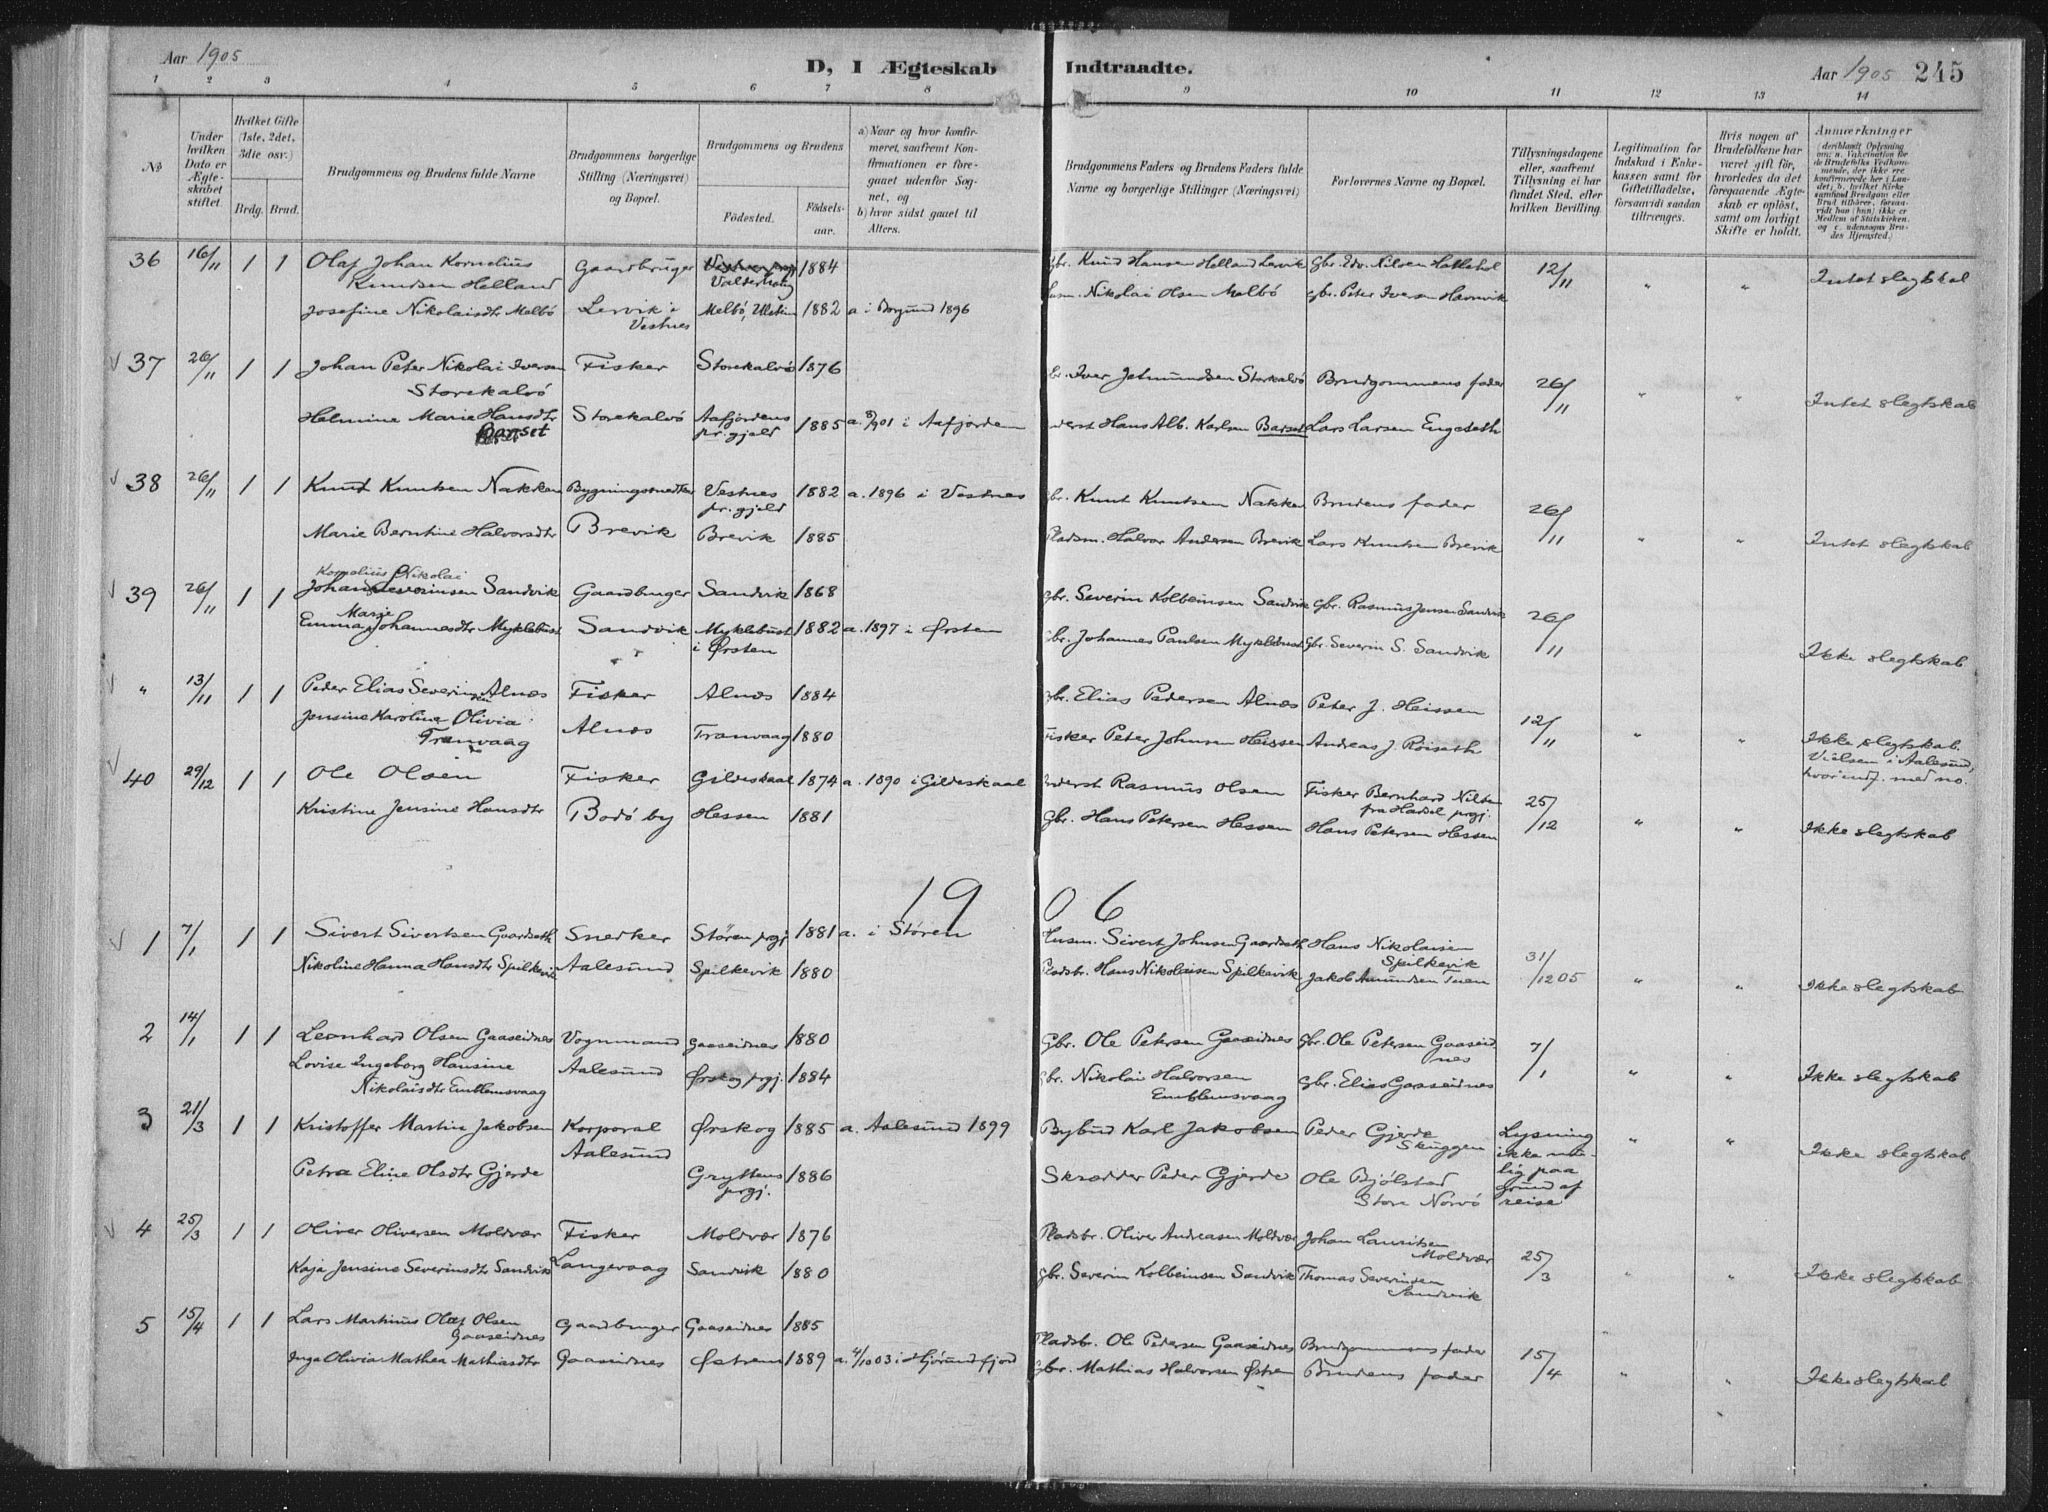 Aar 1905
D, I Ægteskab Indtraadte.
Aar 1905 245
1 2 3 4 5 6 7 8 9 10 11 12 13 14
№
Under hvilken Dato er Ægteskabet stiftet.
Hvilket Gifte (1ste, 2det, 3die osv.)
Brdg. Brud.
Brudgommens og Brudens fulde Navne
Brudgommens borgerlige Stilling (Næringsvei) og Bopæl.
Brudgommens og Brudens
Fødested. Fødselsaar.
a) Naar og hvor konfirmeret, saafremt Konfirmationen er foregaaet udenfor Sognet, og
b) hvor sidst gaaet til Alters.
Brudgommens Faders og Brudens Faders fulde Navne og borgerlige Stillinger (Næringsvei)
Forlovernes Navne og Bopæl.
Tillysningsdagene eller, saafremt Tillysning ei har fundet Sted, efter hvilken Bevilling.
Legitimation for Indskud i Enkekassen samt for Giftetilladelse, forsaavidt saadan tiltrænges.
Hvis nogen af Brudefolkene har været gift før, hvorledes da det foregaaende Ægteskab er opløst, samt om lovligt Skifte er holdt.
Anmærkninger (deriblandt Oplysning om: a. Vakcination for de Brudefolks Vedkommende, der ikke ere konfirmerede her i Landet; b. hvilket Kirkesamfund Brudgom eller Brud tilhører, forsaavidt han (hun) ikke er Medlem af Statskirken, og c. udensogns Brudes Hjemsted.)
36 16/11 1 1 Olaf Johan Kornelius Gaardbruger 1884 Gbr. Knud Hansen Helland Lervik Gbr. Edv. Nilsen Hatlehol 12/11 " " Intet slegtskab
Knudsen Helland Valderhaug
Josefine Nikolaisdtr Melbö Lervik i Melbö, Ulstein 1882 a i Borgund 1896 Nikolai Olsen Melbö Gbr. Peter Iversen Havnvik
Vestnes
37 26/11 1 1 Johan Peter Nikolai Iversen Fisker Storekalvö 1876 Iver Jetmundsen Storkalvö Brudgommens fader 26/11 " " Intet slegtskab
Storekalvö
Helmine Marie Hansdtr Storekalvö Aafjordens 1885 a. 8/901 i Aafjorden Hans Alb. Karlsen Barset Lars Larsen Engeseth
Barset pr.gjeld
38 26/11 1 1 Knut Knutsen Nakken Bygningssnedker Vestnes 1882 a. 1896 i Vestnes Gbr. Knut Knutsen Nakken Brudens fader 26/11 " " Intet slegtskab
pr.gjeld
Marie Berntine Halvorsdtr Brevik Brevik 1885 Pladsm. Halvor Andersen Brevik Lars Knutsen Brevik
Kornelius Nikolai
39 26/11 1 1 Johan Severinsen Sandvik Gaardbruger Sandvik 1868 Gbr. Severin Kolbeinsen Sandvik Gbr. Rasmus Jensen Sandvik 26/11 Ikke slegtskab
Marie
Emma Johannesdtr Myklebust Sandvik Myklebust 1882 a. 1897 i Ørsten Gbr. Johannes Paulsen Myklebust Gbr. Severin S. Sandvik
i Ørsten
" 13/11 1 1 Peder Elias Severinsen Alnæs Fisker Alnæs 1884 Gbr. Elias Pedersen Alnæs Peter J. Heissen 12/11 " " Ikke slegtskab.
Jensine Karoline Olivia Alnæs Tranvaag 1880 Fisker Peter Johnsen Heissen Andreas J. Röiseth Vielsen i Aalesund,
Tranvaag hvor indf. med no.
40 29/12 1 1 Ole Olsen Fisker Gildeskaal 1874 a. 1890 i Gildeskaal Inderst Rasmus Olsen Fisker Bernhard Nilsen 25/12 " " Ikke slegtskab
fra Hadsel prgj.
Kristine Jensine Hansdtr Bodö by Hessen 1881 Gbr. Hans Petersen Hessen Hans Petersen Hessen
1906
1 7/1 1 1 Sivert Sivertsen Gaardseth Snedker Stören prgj 1881 a. i Stören Husm. Sivert Johnsen Gaardseth Hans Nikolaisen 31/12 05 " " Ikke slegtskab
Spilkevik
Nikoline Hanna Hansdtr Spilkevik Aalesund Spilkevik 1880 Pladsbr. Hans Nikolaisen Spilkevik Jakob Amundsen Tuen
2 14/1 1 1 Leonhard Olsen Gaaseidnes Vognmand Gaaseidnes 1880 Gbr. Ole Petersen Gaaseidnes Gbr. Ole Petersen Gaaseidnes 7/1 " " Ikke slegtskab
Lovise Ingeborg Hansine Aalesund Ørskog prgj. 1884 Gbr. Nikolai Halvorsen Gbr. Elias Gaaseidnes
Nikolaisdtr Emblemsvaag Emblemsvaag
3 21/3 1 1 Kristoffer Martin Jakobsen Korporal Ørskog 1885 a. Aalesund 1899 Bybud Karl Jakobsen Peder Gjerde Lysning " " Ikke slegtskab
Aalesund Skuggen ikke mu-
Petra Eline Olsdtr Gjerde Gryttens 1886 Skrædder Peder Gjerde Ole Bjölstad lig paa
prgj. Store Norvö grund af
reise
4 25/3 1 1 Oliver Oliversen Moldvær Fisker Moldvær 1876 Pladsbr. Oliver Andreasen Moldvær Johan Lauritsen 25/3 " " Ikke slegtskab
Moldvær
Kaja Jensine Severinsdtr Sandvik Langevaag Sandvik 1880 Gbr. Severin Kolbeinsen Sandvik Thomas Severinsen
Sandvik
5 15/4 1 1 Lars Martinus Olaf Olsen Gaardbruger Gaaseidnes 1885 Pladsbr. Ole Pedersen Gaaseidnes Brudgommens fader 15/4 " " Ikke slegtskab
Gaaseidnes
Inga Olivia Mathea Mathiasdtr Gaaseidnes Østrem 1889 a. 4/10 03 i Hjörundfjord Gbr. Mathias Halvorsen Østrem Brudens fader